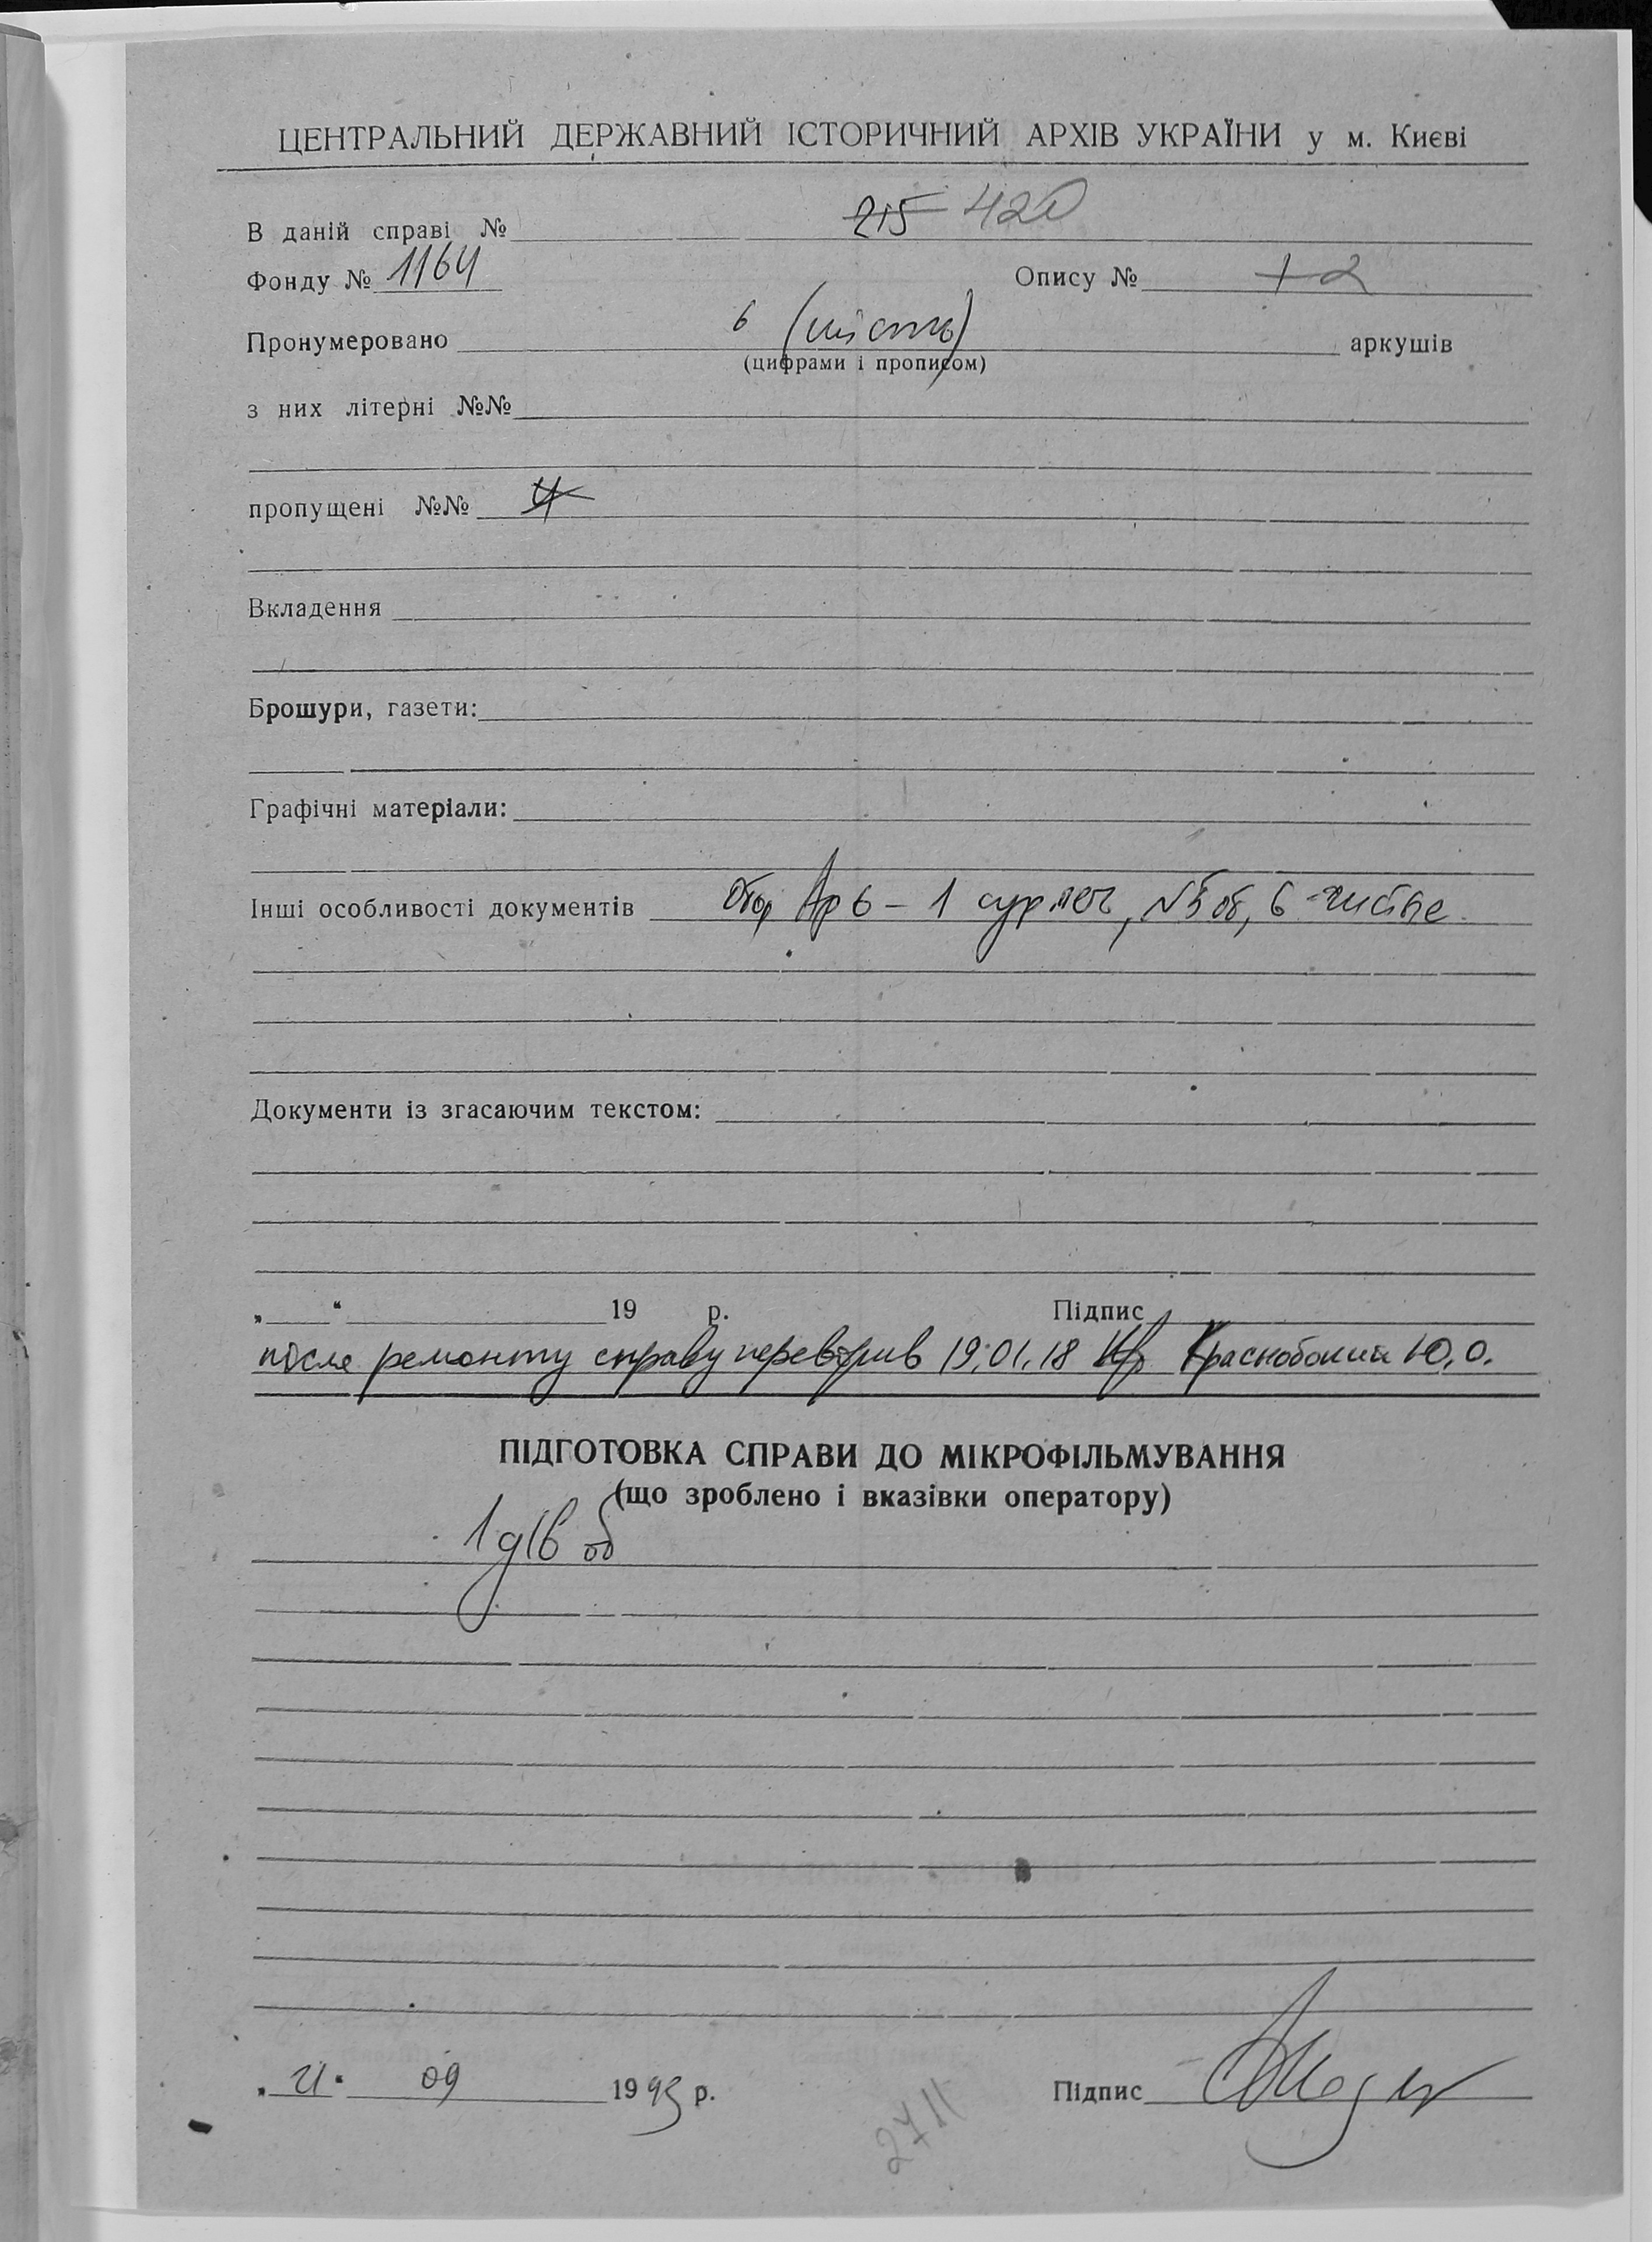 ЦЕНТРАЛЬНИЙ ДЕРЖАВНИЙ ІСТОРИЧНИЙ АРХІВ УКРАЇНИ у м. Києві
В даній справі № 215 420
Фонду № 1164 Опису № 1 2
Пронумеровано 6 (шість) аркушів
(цифрами і прописом)
з них літерні №№
пропущені №№ 4
Вкладення
Брошури, газети:
Графічні матеріали:
Інші особливості документів Ар 6 – 1 сур печ, № 5 об, 6 - чисті
Документи із згасаючим текстом:
„ “ 19 р. Підпис
після ремонту справу перевірив 19.01.18 Краснобокий Ю.О.
ПІДГОТОВКА СПРАВИ ДО МІКРОФІЛЬМУВАННЯ
(що зроблено і вказівки оператору)
21 09 1993 р. Підпис
2711